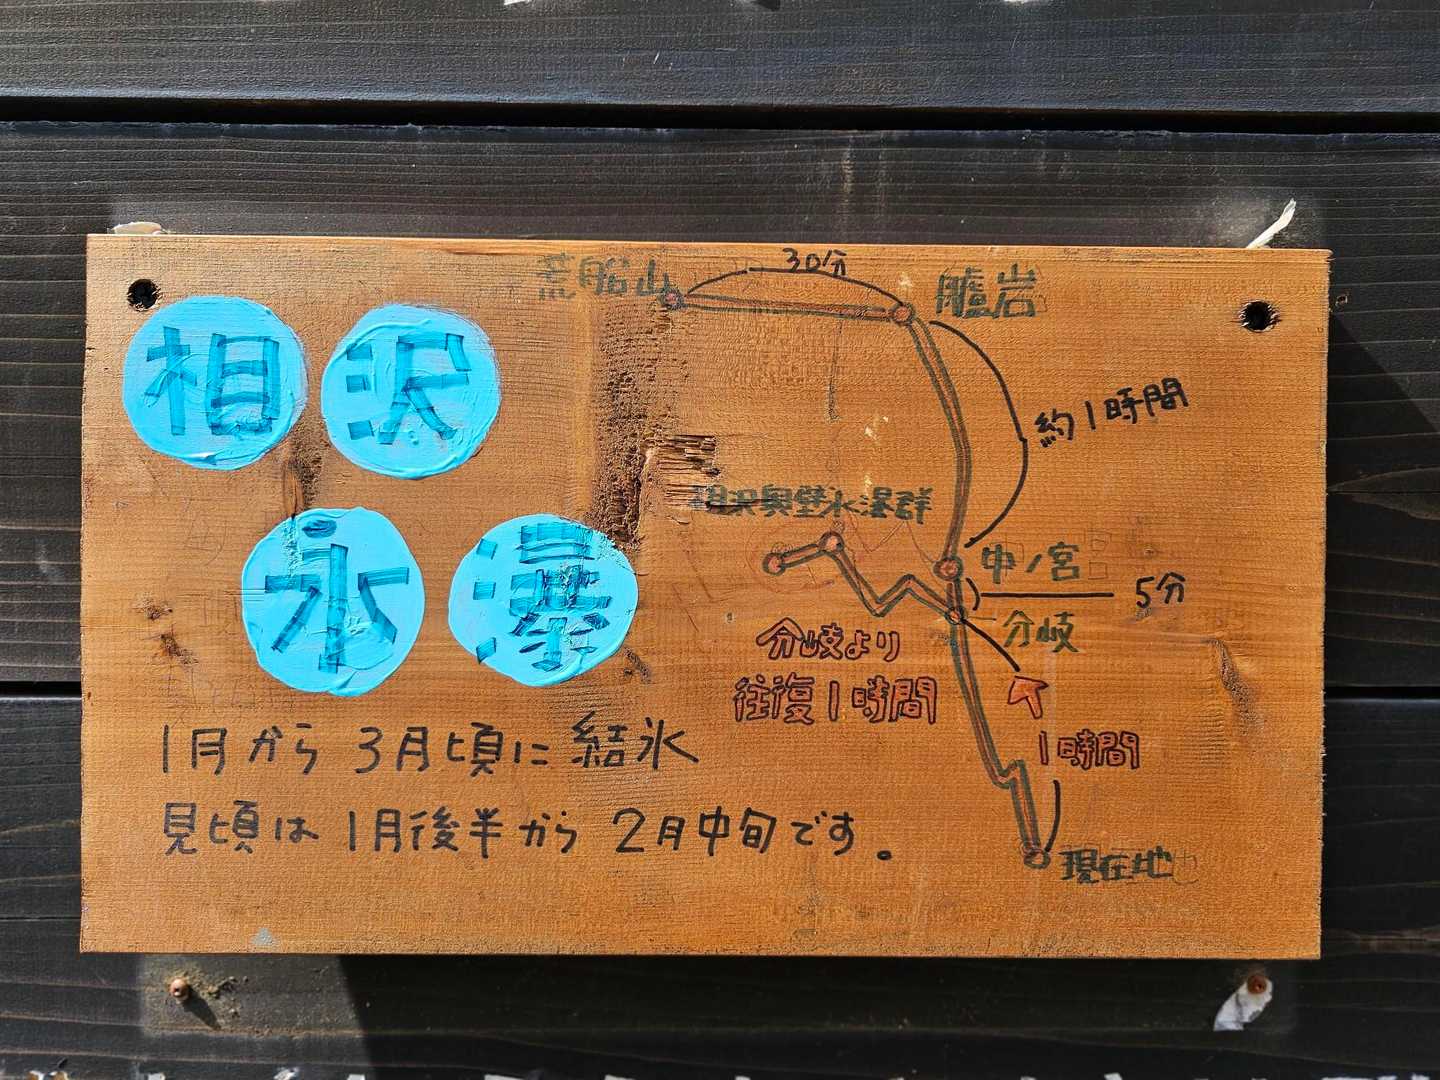 相沢
氷瀑
1月から3月頃に結氷
見頃は1月後半から2月中旬です。
荒船山
30分
艫岩
約1時間
相沢奥壁氷瀑群
中ノ宮
5分
分岐
分岐より
往復1時間
1時間
現在地